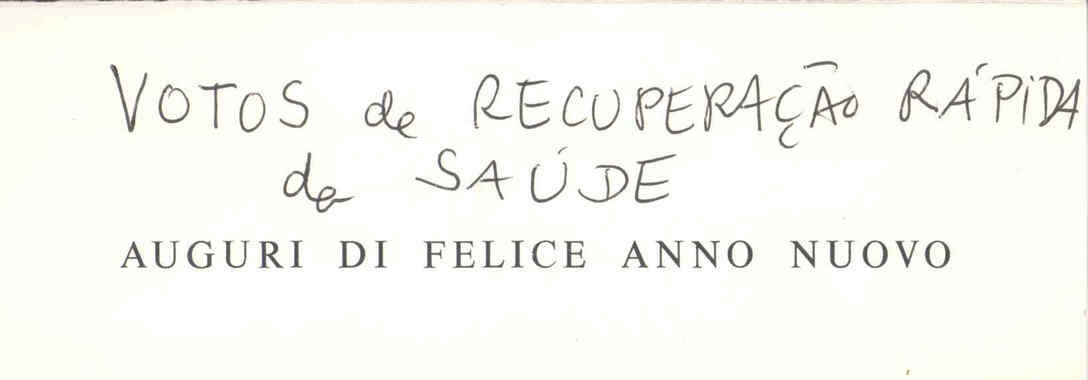 VOTOS de RECUPERAÇÃO RÁPIDA
da SAÚDE
AUGURI DI FELICE ANNO NUOVO